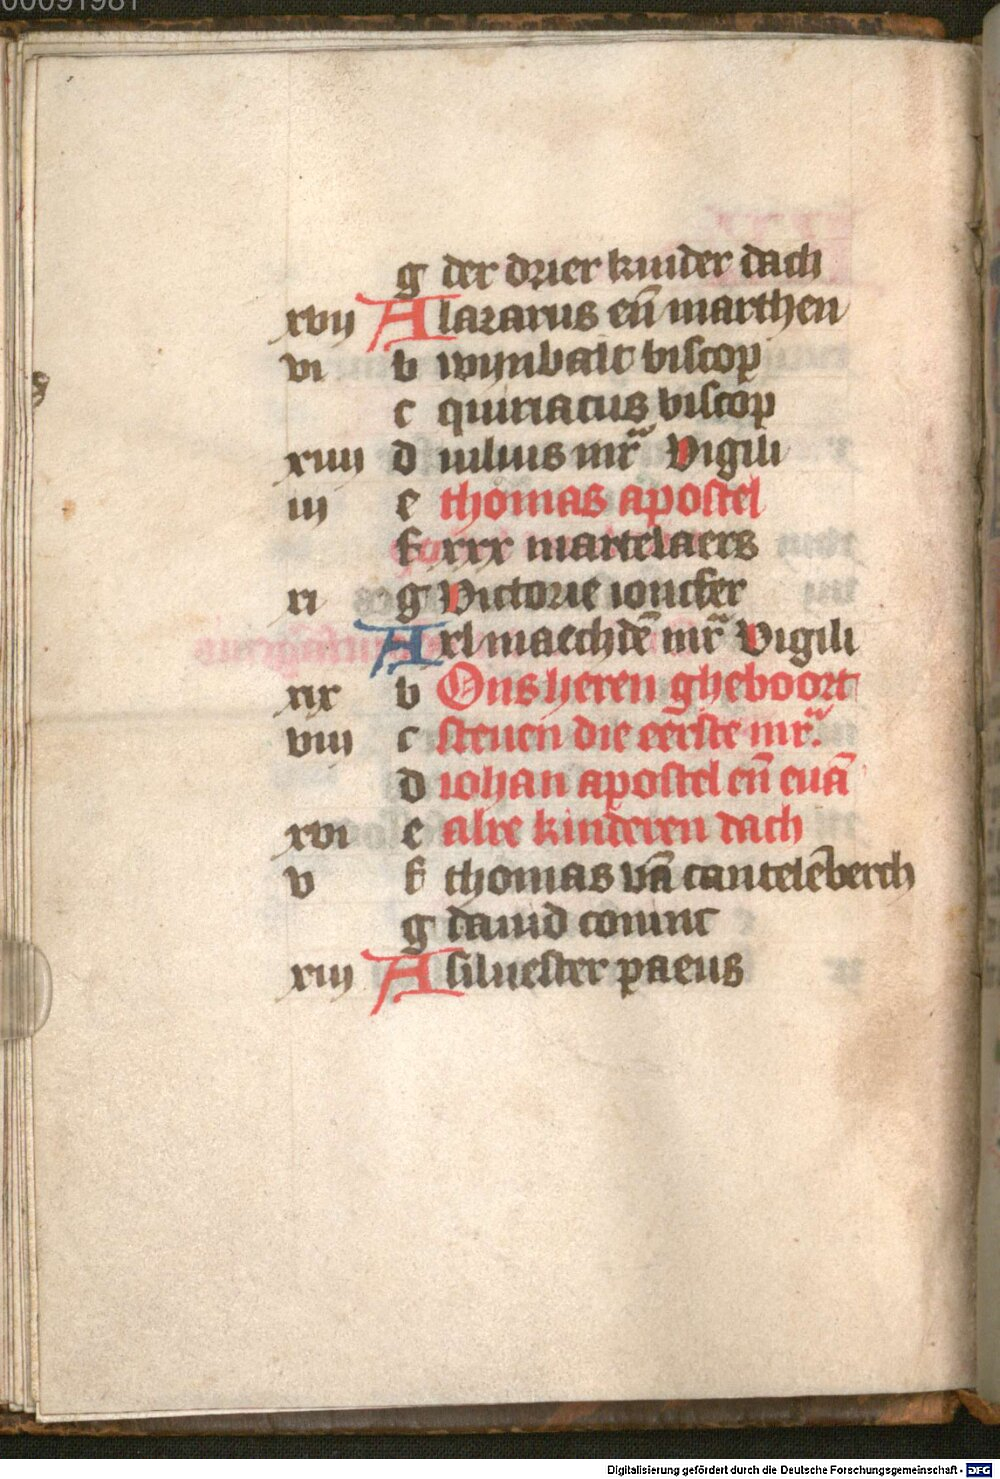 00091981
g der drier kinder dach
xvij A lazarus en̄ marthen
vi b wijnbalt biscop
c quiriacus biscop
xiiij d iulius mr̄ Vigili
iij e thomas apostel
f xxx martelaers
xi g Victorie ioncfer
A xl maechdē mr̄ Vigili
xix b Ons heren gheboort
viij c steuen die eerste mr̄.
d iohan apostel en̄ euā
xvi e alre kinderen dach
v f thomas vā cantelēberch
g dauid coninc
xiij A siluester paeus
Digitalisierung gefördert durch die Deutsche Forschungsgemeinschaft - DFG